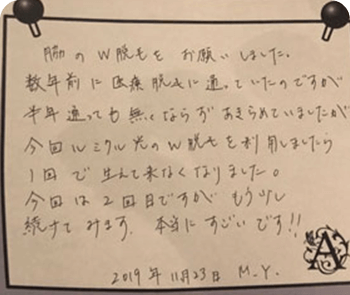 脇のW脱毛をお願いしました。
数年前に医療脱毛に通っていたのですが
半年通っても無くならずあきらめていましたが
今回ルミクル光のW脱毛を利用しましたら
1回で生えて来なくなりました。
今回は2回目ですがもう少し
続けてみます。本当にすごいです!!
A
2019年11月23日 M.Y.